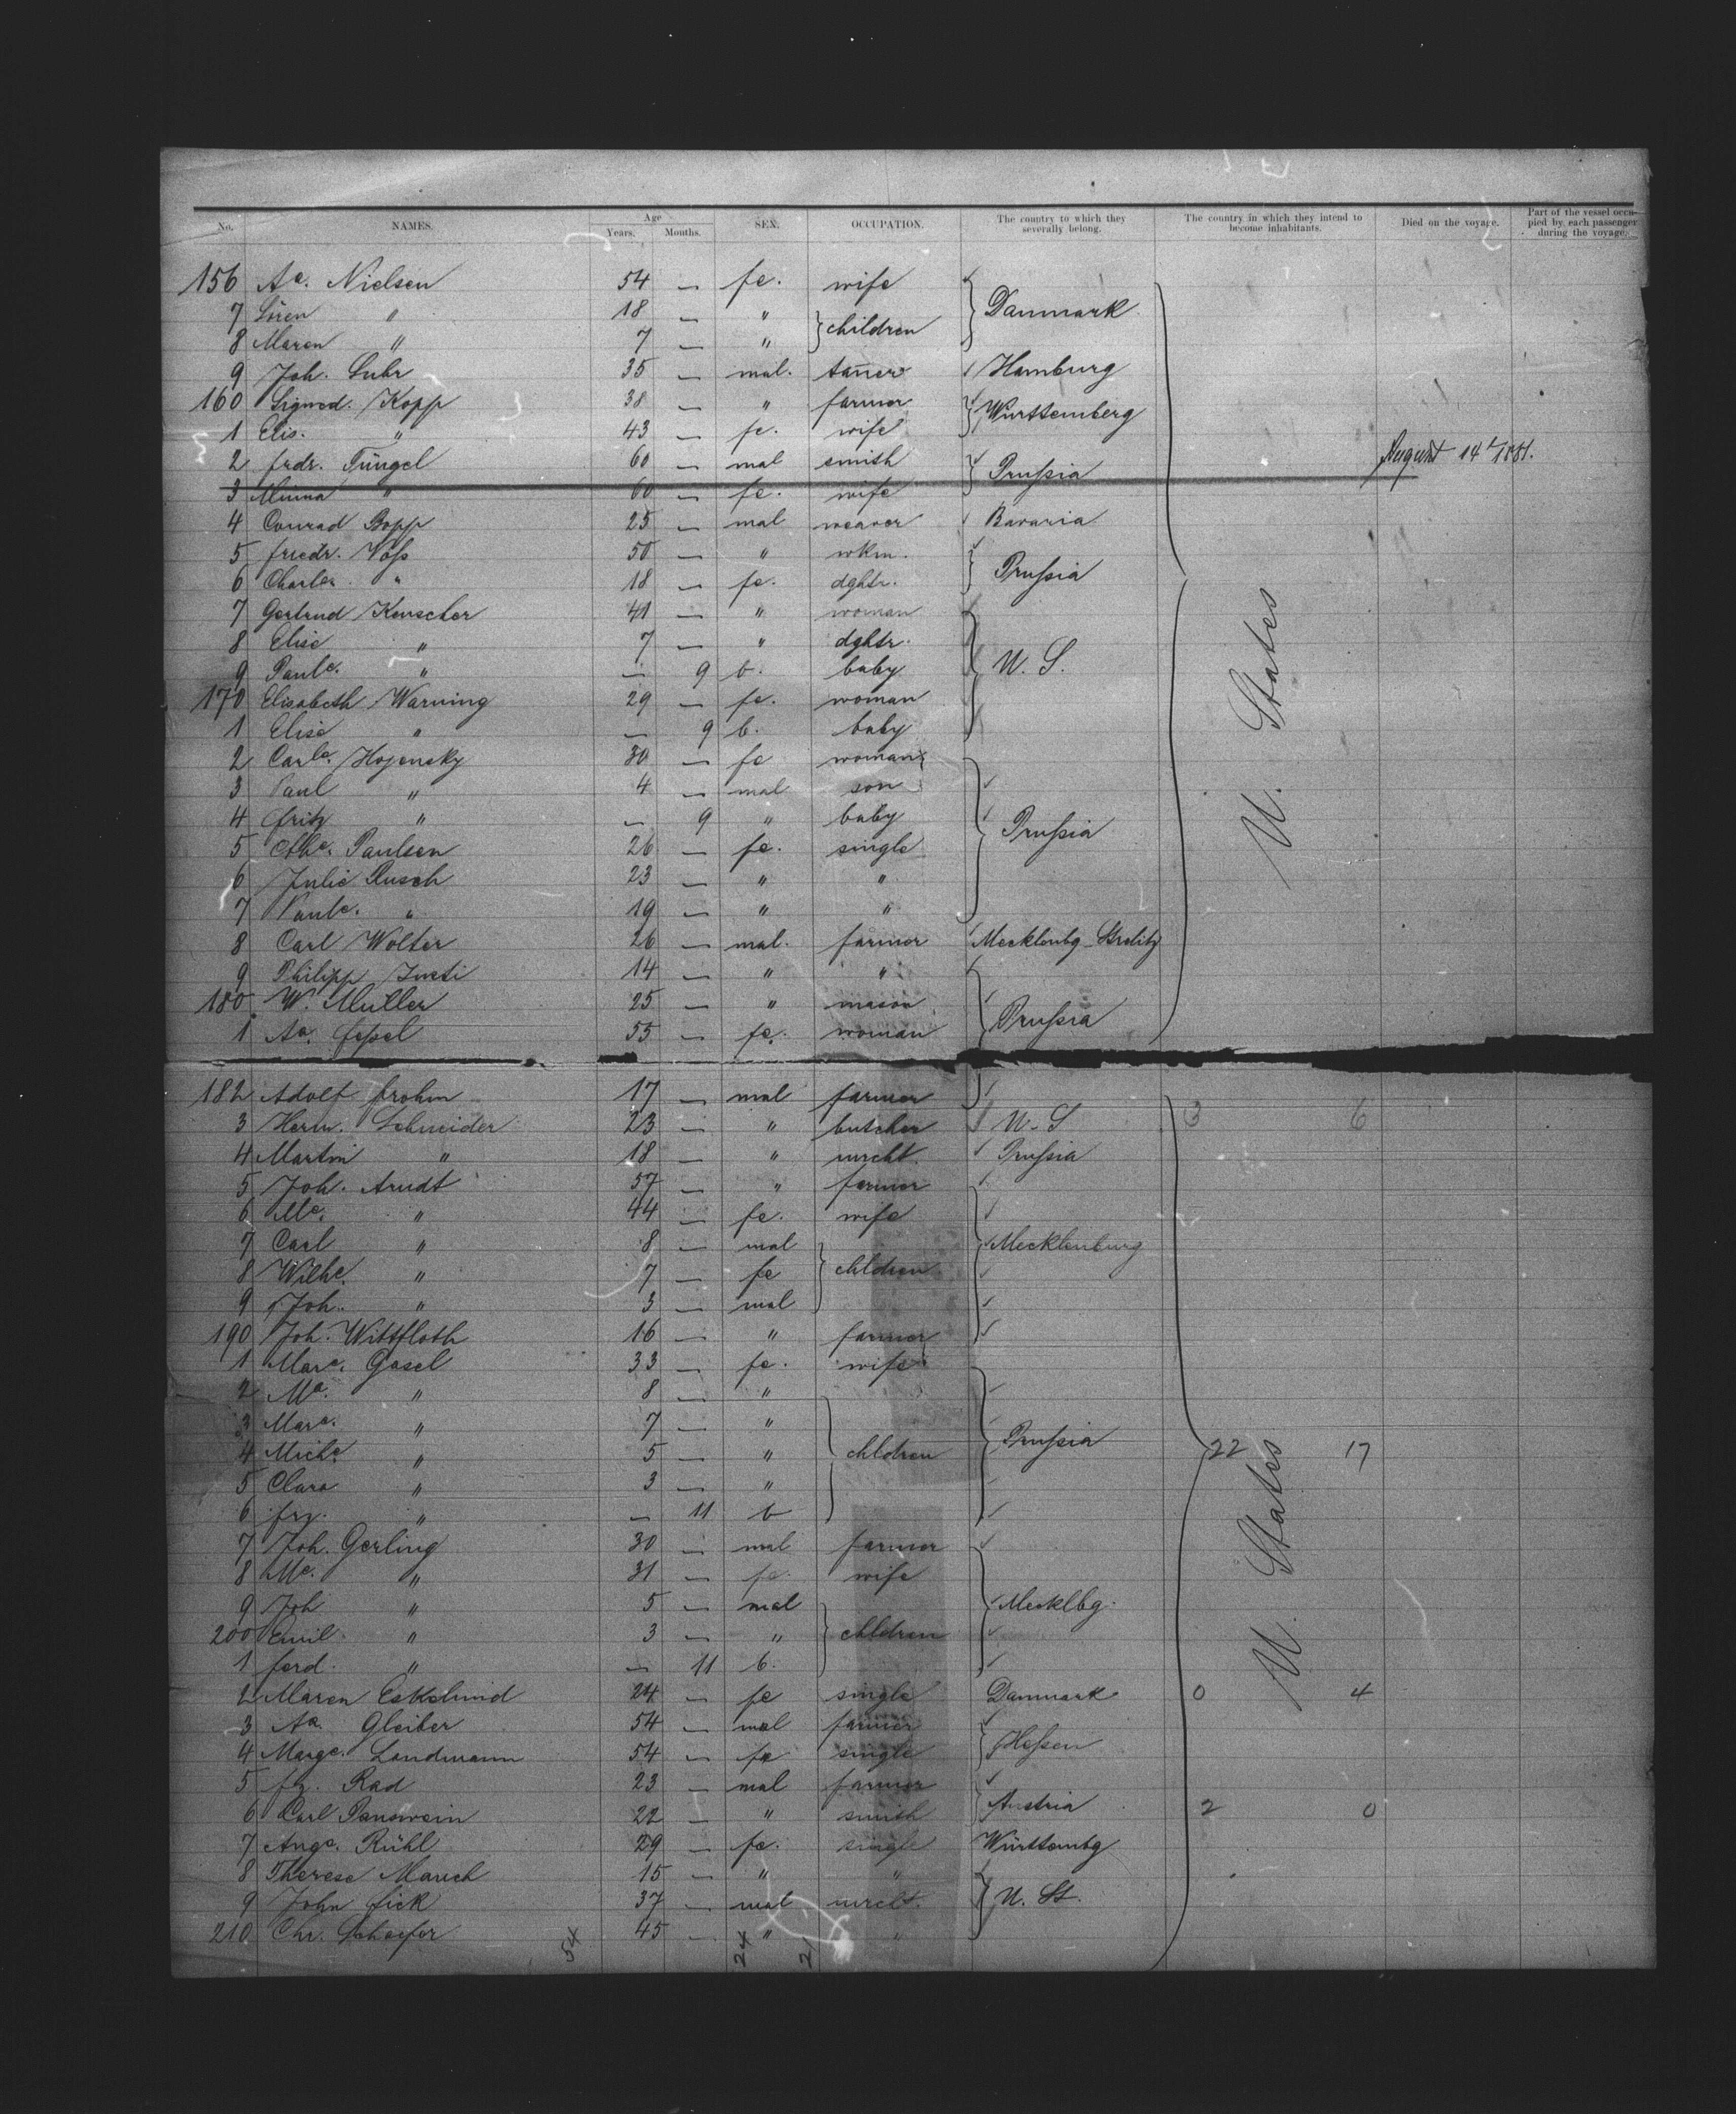 No. NAMES. Age Years. Months. SEX. OCCUPATION. The country to which they severally belong. The country in which they intend to become inhabitants. Died on the voyage. Part of the vessel occupied by each passenger during the voyage.
156 Ae. Nielsen 54 — fe. wife
7 Sören " 18 — " } children } Danmark
8 Maren " 7 — "
9 Joh. Luhr 35 — mal. tañer Hamburg
160 Sigmd. Kopp 38 — " farmer } Württemberg
1 Elis. " 43 — fe. wife
2 frdr. Tüngel 60 — mal smith } Prußia August 14t 1881.
3 Minna " 60 — fe. wife
4 Conrad Bopp 25 — mal weaver Bavaria
5 friedr. Voß 50 — " wkm.
6 Charle. " 18 — fe. dghtr. } Prußia
7 Gertrud Kerscher 41 — " woman
8 Elise " 7 — " dghtr.
9 Paule. " — 9 b. baby } U. S.
170 Elisabeth Warning 29 — fe. woman
1 Elise " — 9 b. baby
2 Carle. Hojensky 30 — fe woman
3 Paul " 4 — mal son
4 fritz " — 9 " baby } Prußia
5 Cthe. Paulsen 26 — fe. single
6 Julie Rusch 23 — " "
7 Paule. " 19 — " "
8 Carl Wolter 26 — mal. farmer Mecklenbg-Strelitz
9 Philipp Justi 14 — " "
180 W. Müller 25 — " mason } Prußia
1 Aa. feßel 55 — fe. woman
U. States
182 Adolf frohm 17 — mal farmer
3 Herm. Schneider 23 — " butcher U-S 3 6
4 Martin " 18 — " mrcht. Prußia
5 Joh. Arndt 57 — " farmer
6 Me. " 44 — fe. wife
7 Carl " 8 — mal Mecklenburg
8 Wilhe. " 7 — fe } chldren
9 Joh. " 3 — mal
190 Joh. Wittfloth 16 — " farmer
1 Mare. Gosel 33 — fe. wife
2 Ma. " 8 — "
3 Mara. " 7 — "
4 Miche. " 5 — " chldren } Prußia 22 17
5 Clara " 3 — "
6 frz. " — 11 b
7 Joh. Gerling 30 — mal farmer
8 Me. " 31 — fe. wife
9 Joh " 5 — mal } Mecklbg.
200 Emil " 3 — " } chldren
1 ferd. " — 11 b.
2 Maren Eskelund 24 — fe single Danmark 0 4
3 Aa. Gleiber 54 — mal farmer
4 Marge. Landmann 54 — fe single } Heßen
5 fz. Rad 23 — mal farmer
6 Carl Panowsin 22 — " smith } Austria 2 0
7 Auge. Rühl 29 — fe. single Württembg
8 Therese March 15 — " "
9 John fick 37 — mal mrcht. } U. St.
210 Chr. Schaefer 54 45 — 24 " 21 "
U. States